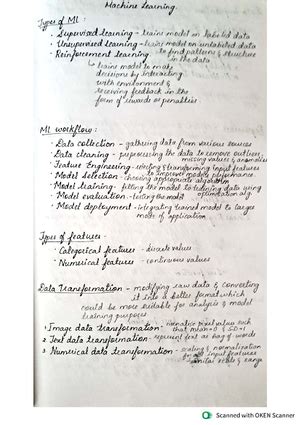 Machine Learning.
Types of ML :
· Supervised learning - trains model on labeled data
· Unsupervised learning - trains model on unlabeled data
· Reinforcement learning to find patterns & structure
in the data
↳ trains model to make
decisions by interacting
with environment &
receiving feedback in the
form of rewards or penalties
ML workflow :
· Data collection - gathering data from various sources
· Data cleaning - preprocessing the data to remove outliers,
missing values & anomalies
· Feature Engineering - selecting & transforming input features
to improve model's performance
· Model selection - choosing appropriate algorithm
· Model training - fitting the model to training data using
optimization alg.
· Model evaluation - testing the model
· Model deployment - integrating trained model to
mode of application
Types of features -
· Categorical features - discrete values
· Numerical features - continuous values
Data Transformation - modifying raw data & converting
it into a better format which
could be more suitable for analysis & model
training purposes
1 Image data transformation - normalize pixel value such
that mean = 0 & SD = 1
2 Text data transformation - represent text as bag of words
3 Numerical data transformation - scaling & normalization
input features
range
Scanned with OKEN Scanner